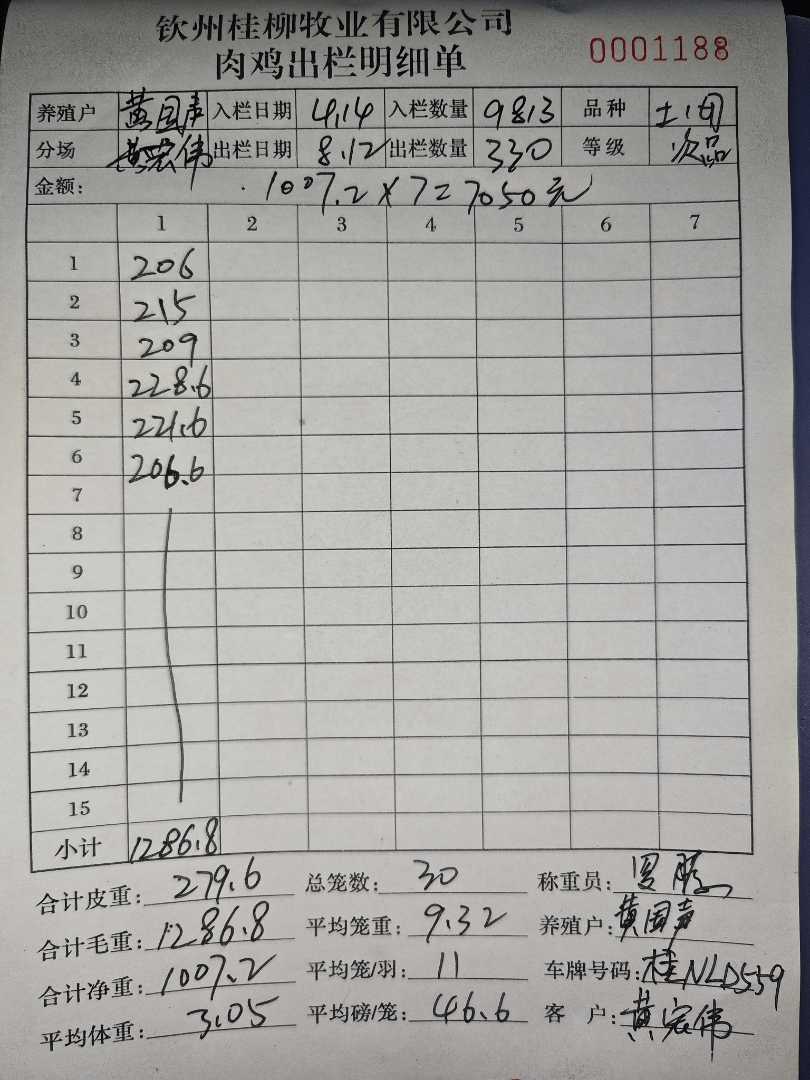 钦州桂柳牧业有限公司
肉鸡出栏明细单 0001188
养殖户 黄国声 入栏日期 4.14 入栏数量 9813 品种
分场 黄宏伟 出栏日期 8.12 出栏数量 330 等级 次品
金额: 1007.2×7=7050元
1 2 3 4 5 6 7
1 206
2 215
3 209
4 228.6
5 221.6
6 206.6
7
8
9
10
11
12
13
14
15
小计 1286.8
合计皮重: 279.6 总笼数: 30 称重员:
合计毛重: 1286.8 平均笼重: 9.32 养殖户: 黄国声
合计净重: 1007.2 平均笼/羽: 11 车牌号码: 桂NLD559
平均体重: 3.05 平均磅/笼: 46.6 客 户: 黄宏伟